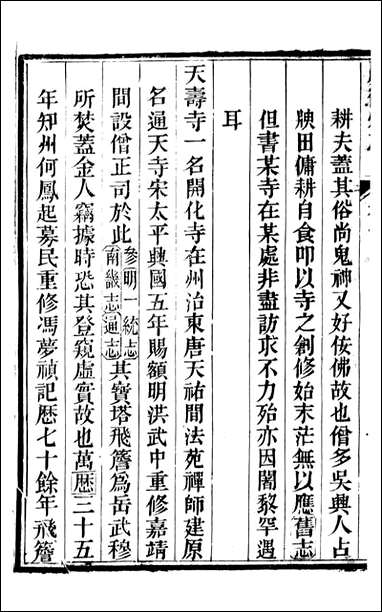 耕夫葢其俗尚鬼神又好佞佛故也僧多吳興人占
腴田傭耕自食叩以寺之創修始末茫無以應舊志
但書某寺在某處非盡訪求不力殆亦因闍黎罕遇
耳
天壽寺一名開化寺在州治東唐天祐間法苑禪師建原
名通天寺宋太平興國五年賜額明洪武中重修嘉靖
間設僧正司於此參明一統志南畿志通志其寶塔飛簷爲岳武穆
所焚葢金人竊據時恐其登窺虛實故也萬曆三十五
年知州何鳳起募民重修馮夢禎記歷七十餘年飛簷